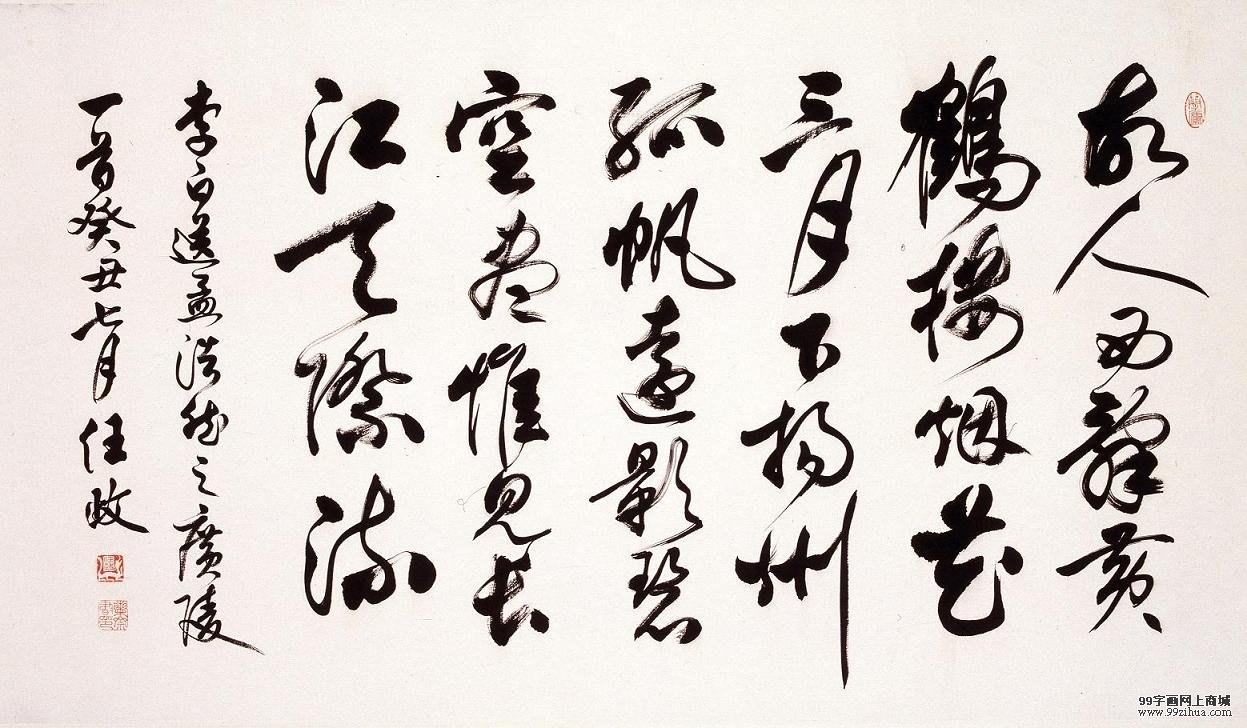 故人西辭黃
鶴樓烟花
三月下揚州
孤帆遠影碧
空盡惟見長
江天際流
李白送孟浩然之廣陵
一首癸丑七月任政
99字画网上商城
www.99zihua.com